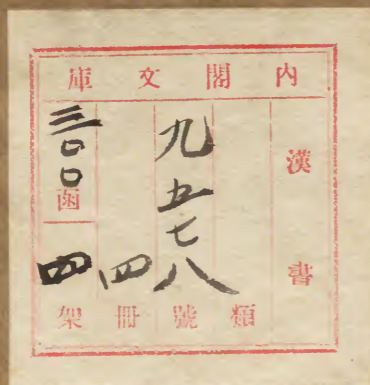 內閣文庫
漢書
類
九五七八號
四冊
三〇〇函
四架